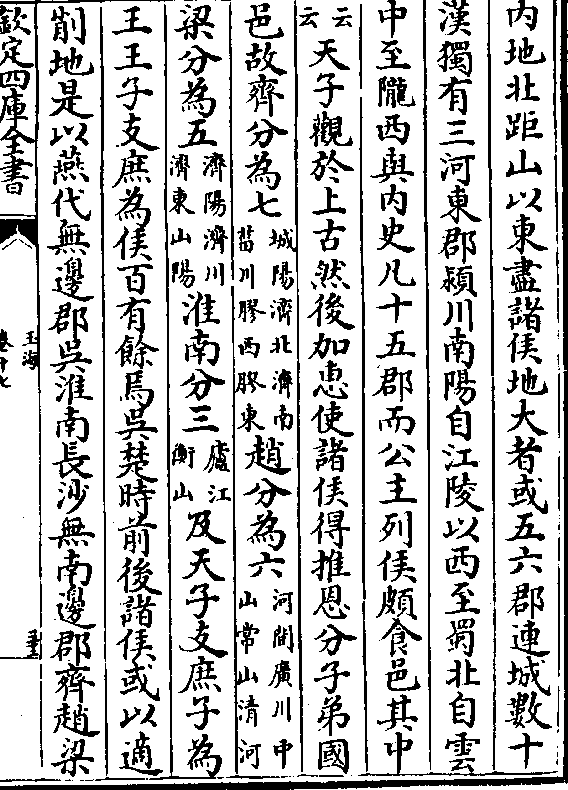 内地北距山以東盡諸侯地大者或五六郡連城數十
漢獨有三河東郡潁川南陽自江陵以西至蜀北自雲
中至隴西與内史凡十五郡而公主列侯頗食邑其中
云云天子觀於上古然後加恵使諸侯得推恩分子弟國
邑故齊分為七城陽濟北濟南菑川膠西膠東趙分為六河間廣川中山常山清河
梁分為五濟陽濟川濟東山陽淮南分三廬江衡山及天子支庶子為
王王子支庶為侯百有餘焉吳楚時前後諸侯或以適
削地是以燕代無邊郡吳淮南長沙無南邊郡齊趙梁
欽定四庫全書
玉海
卷十七